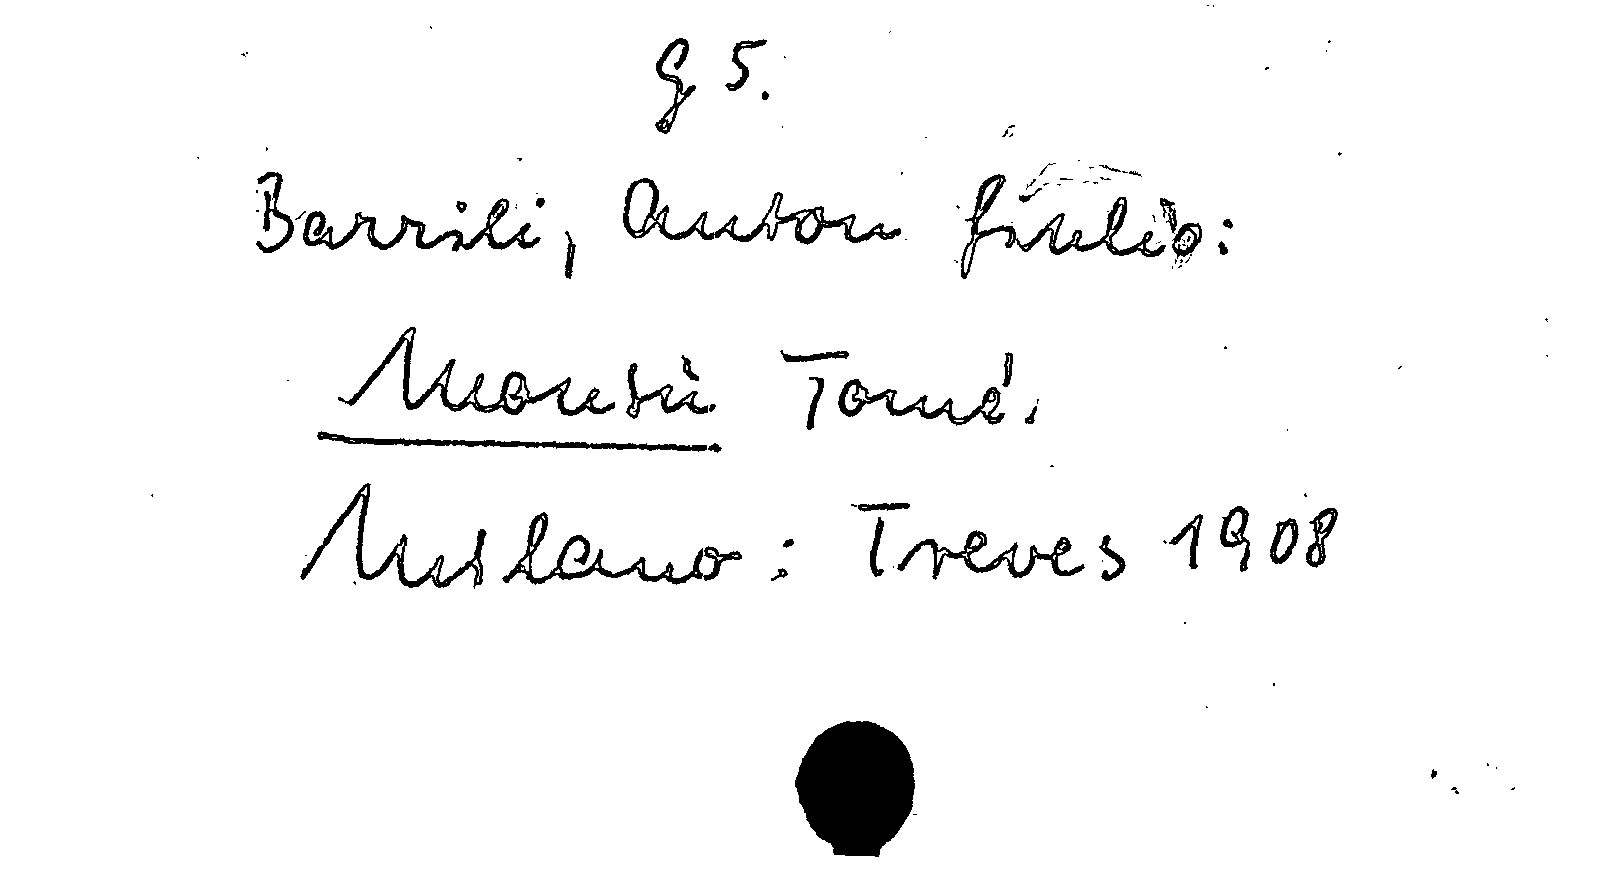 G 5.
Barrili, Anton Giulio:
Monsù Tomé.
Milano: Treves 1908